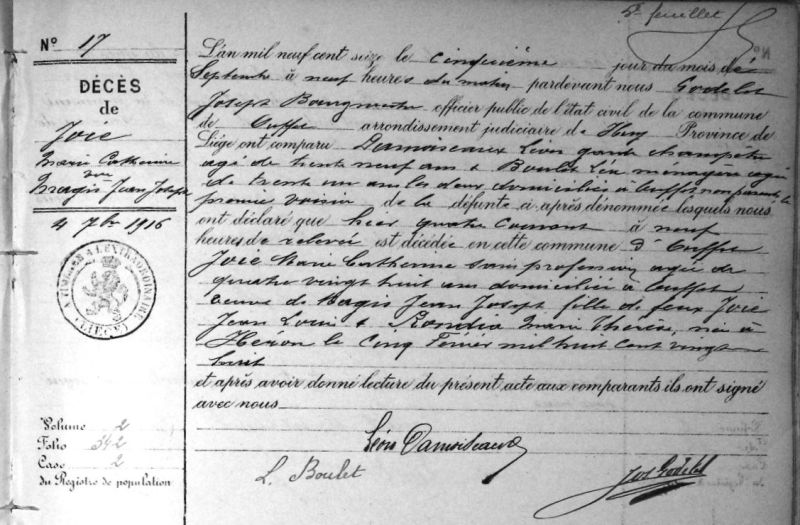 5e feuillet
N° 17
DÉCÈS
de
Joie
Marie Catherine
vve
Magis Jean Joseph
4 7bre 1916
TIMBRE A L'EXTRAORDINAIRE
(LIEGE)
Volume 2
Folio 542
Case 2
du Registre de population
L'an mil neuf cent seize le cinquième jour du mois de
Septembre à neuf heures du matin pardevant nous Godelet
Joseph Bourgmestre officier public de l'état civil de la commune
de Ouffet arrondissement judiciaire de Huy Province de
Liége ont comparu Damoiseaux Léon garde champêtre
agé de trente neuf ans & Boulet Léa ménagère agée
de trente un ans les deux domiciliés à Ouffet non parents, la
première voisine de la défunte ci-après dénommée lesquels nous
ont déclaré que hier quatre courant à neuf
heures de relevée est décédée en cette commune d'Ouffet
Joie Marie Catherine sans profession agée de
quatre vingt huit ans domiciliée à Ouffet
veuve de Magis Jean Joseph fille de feux Joie
Jean Louis & Rondia Marie Thérèse, née à
Heron le cinq Février mil huit cent vingt
huit
et après avoir donné lecture du présent acte aux comparants ils ont signé
avec nous
Léon Damoiseaux
L. Boulet
Jos Godelet